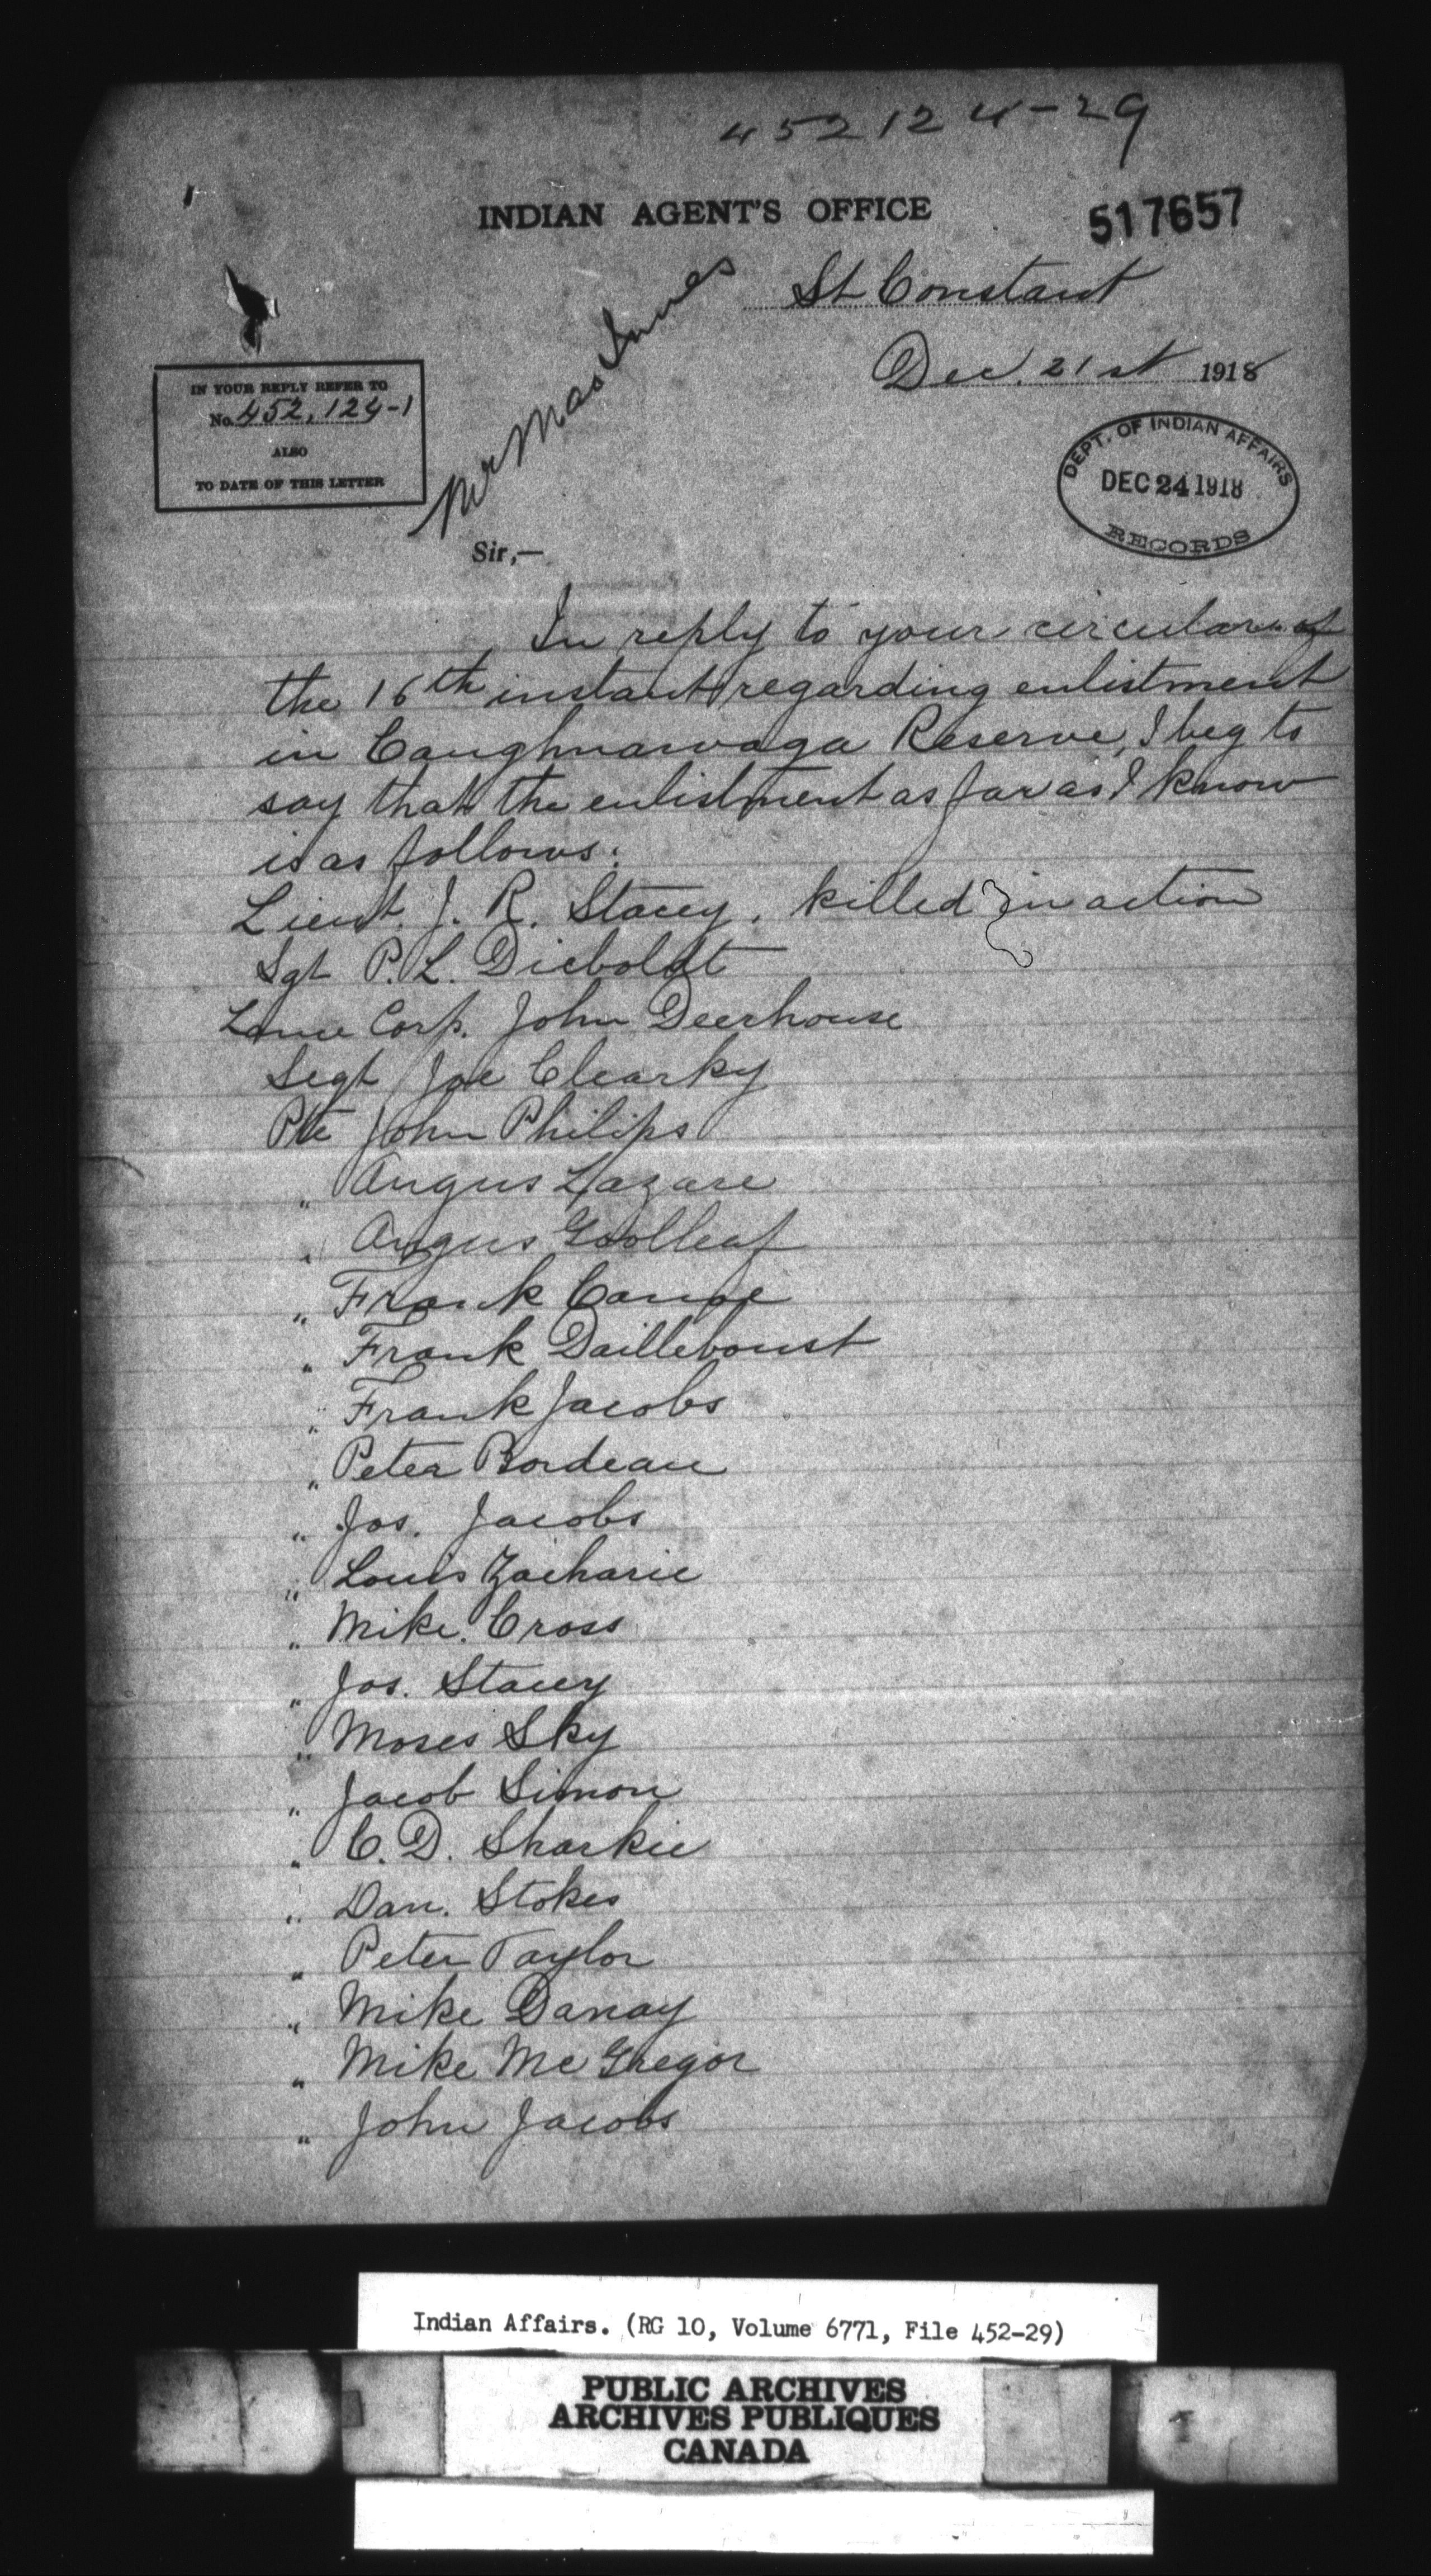 452124-29
INDIAN AGENT'S OFFICE
517657
St. Constant
Dec. 21st 1918
Mr MacInnes
IN YOUR REPLY REFER TO
No. 452,124-1
ALSO
TO DATE OF THIS LETTER
DEPT. OF INDIAN AFFAIRS
DEC 24 1918
RECORDS
Sir,—
In reply to your circular of
the 16th instant regarding enlistment
in Caughnawaga Reserve, I beg to
say that the enlistment as far as I know
is as follows:
Lieut. J. R. Stacey. killed in action
Sgt P. L. Dieboldt
Lance Corp. John Deerhouse
Segt Joe Clearky
Pte John Philips
" Angus Lazare
" Angus Goodleaf
" Frank Canoe
" Frank Dailleboust
" Frank Jacobs
" Peter Bordeau
" Jos. Jacobs
" Louis Zacharie
" Mike. Cross
" Jos. Stacey
" Moses Sky
" Jacob Simon
" C. D. Sharkie
" Dan. Stokes
" Peter Taylor
" Mike Danay
" Mike McGregor
" John Jacobs
Indian Affairs. (RG 10, Volume 6771, File 452-29)
PUBLIC ARCHIVES
ARCHIVES PUBLIQUES
CANADA